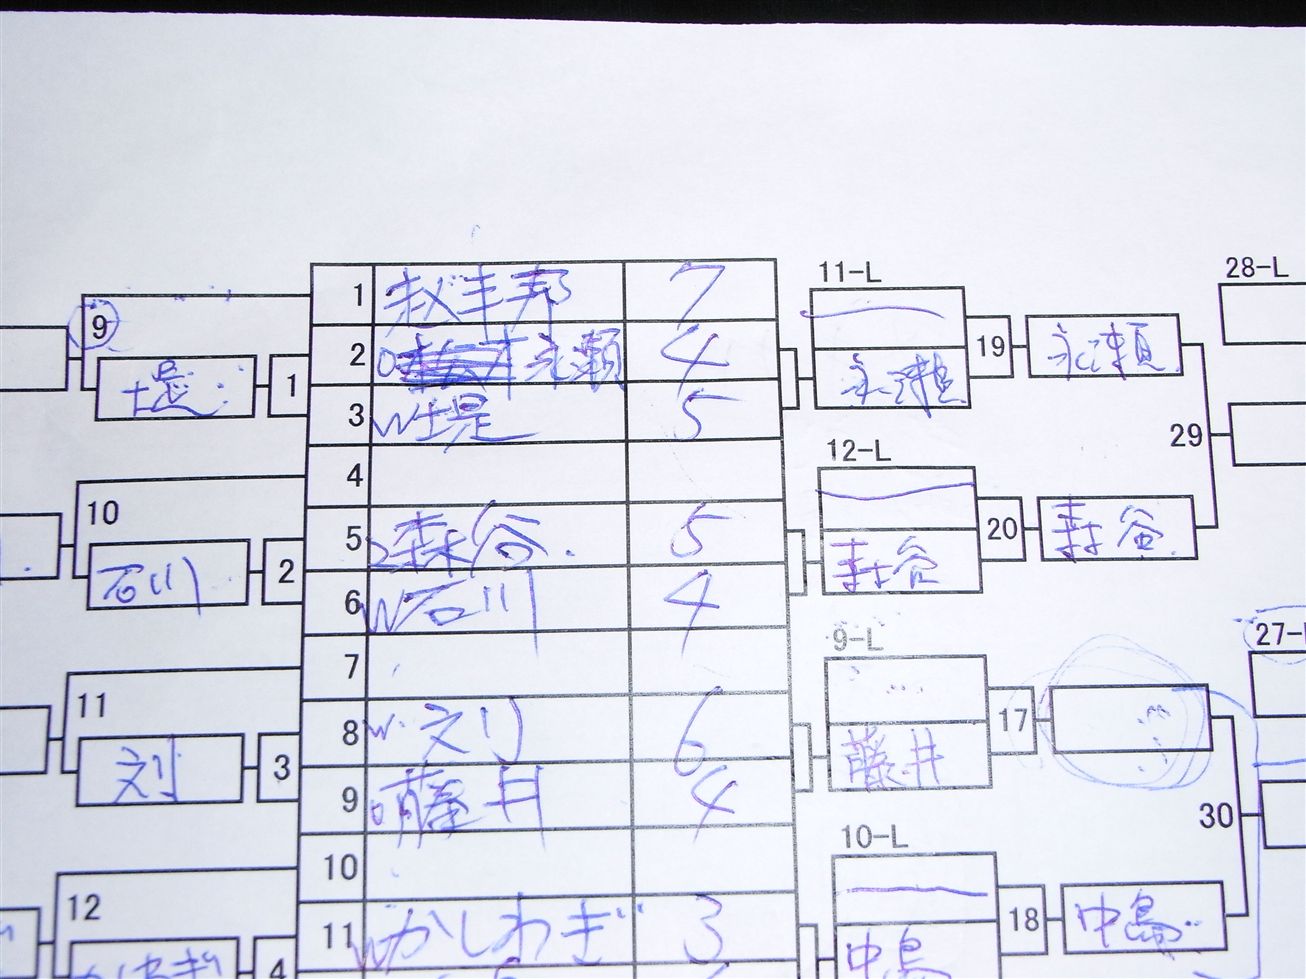 11-L
28-L
1 7
9
2 永瀬 4
19 永瀬
永瀬
堤
1
3 堤 5
29
12-L
4
10
5 森谷 5
20 森谷
森谷
石川
2
6 W石川 4
9-L
27-
7
11
17
8 W 刘 6
藤井
刘
3
9 藤井 4
30
10-L
10
12
11 Wかしわぎ 3
18 中島
中島
4